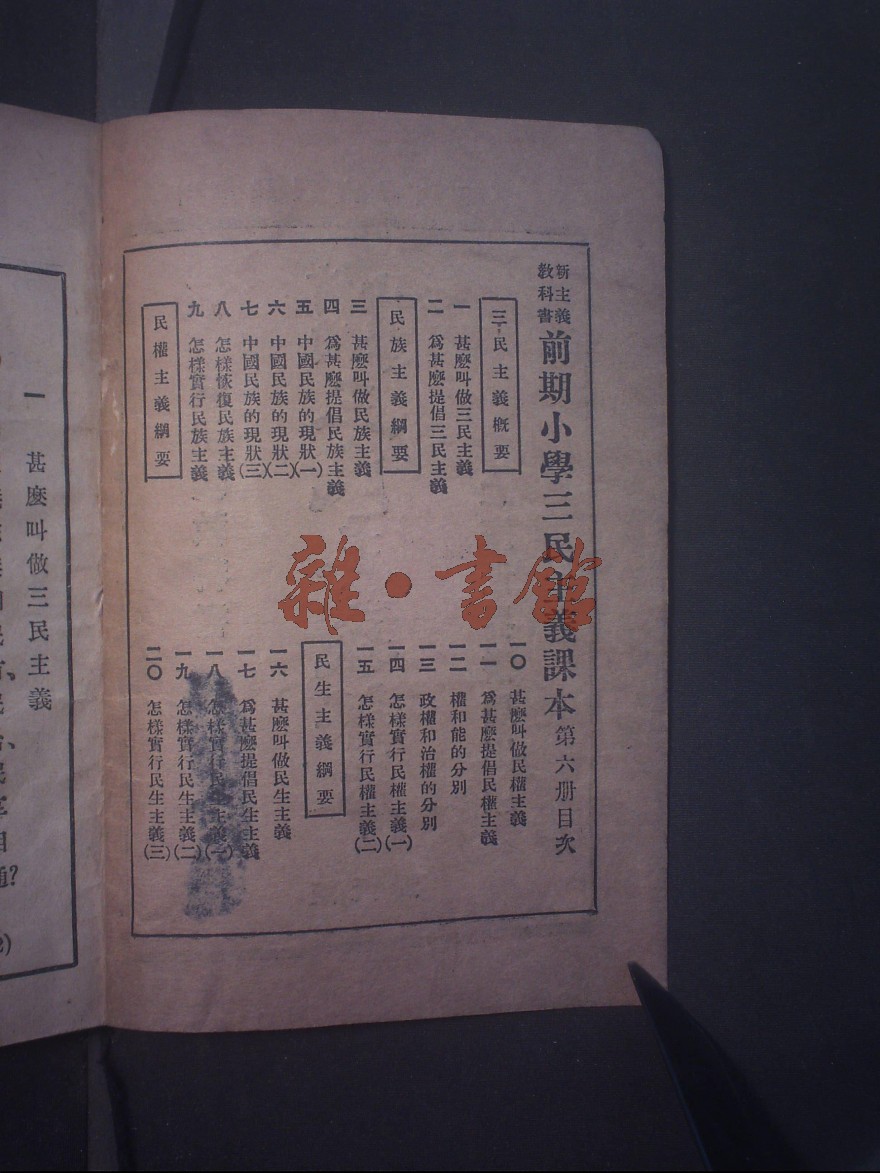 新主義
教科書
前期小學三民主義課本 第六册目次
三民主義概要
一 甚麽叫做三民主義
二 爲甚麽提倡三民主義
民族主義綱要
三 甚麽叫做民族主義
四 爲甚麽提倡民族主義
五 中國民族的現狀(一)
六 中國民族的現狀(二)
七 中國民族的現狀(三)
八 怎樣恢復民族主義
九 怎樣實行民族主義
民權主義綱要
一〇 甚麽叫做民權主義
一一 爲甚麽提倡民權主義
一二 權和能的分別
一三 政權和治權的分別
一四 怎樣實行民權主義(一)
一五 怎樣實行民權主義(二)
民生主義綱要
一六 甚麽叫做民生主義
一七 爲甚麽提倡民生主義
一八 怎樣實行民生主義(一)
一九 怎樣實行民生主義(二)
二〇 怎樣實行民生主義(三)
一 甚麽叫做三民主義
雜·書館